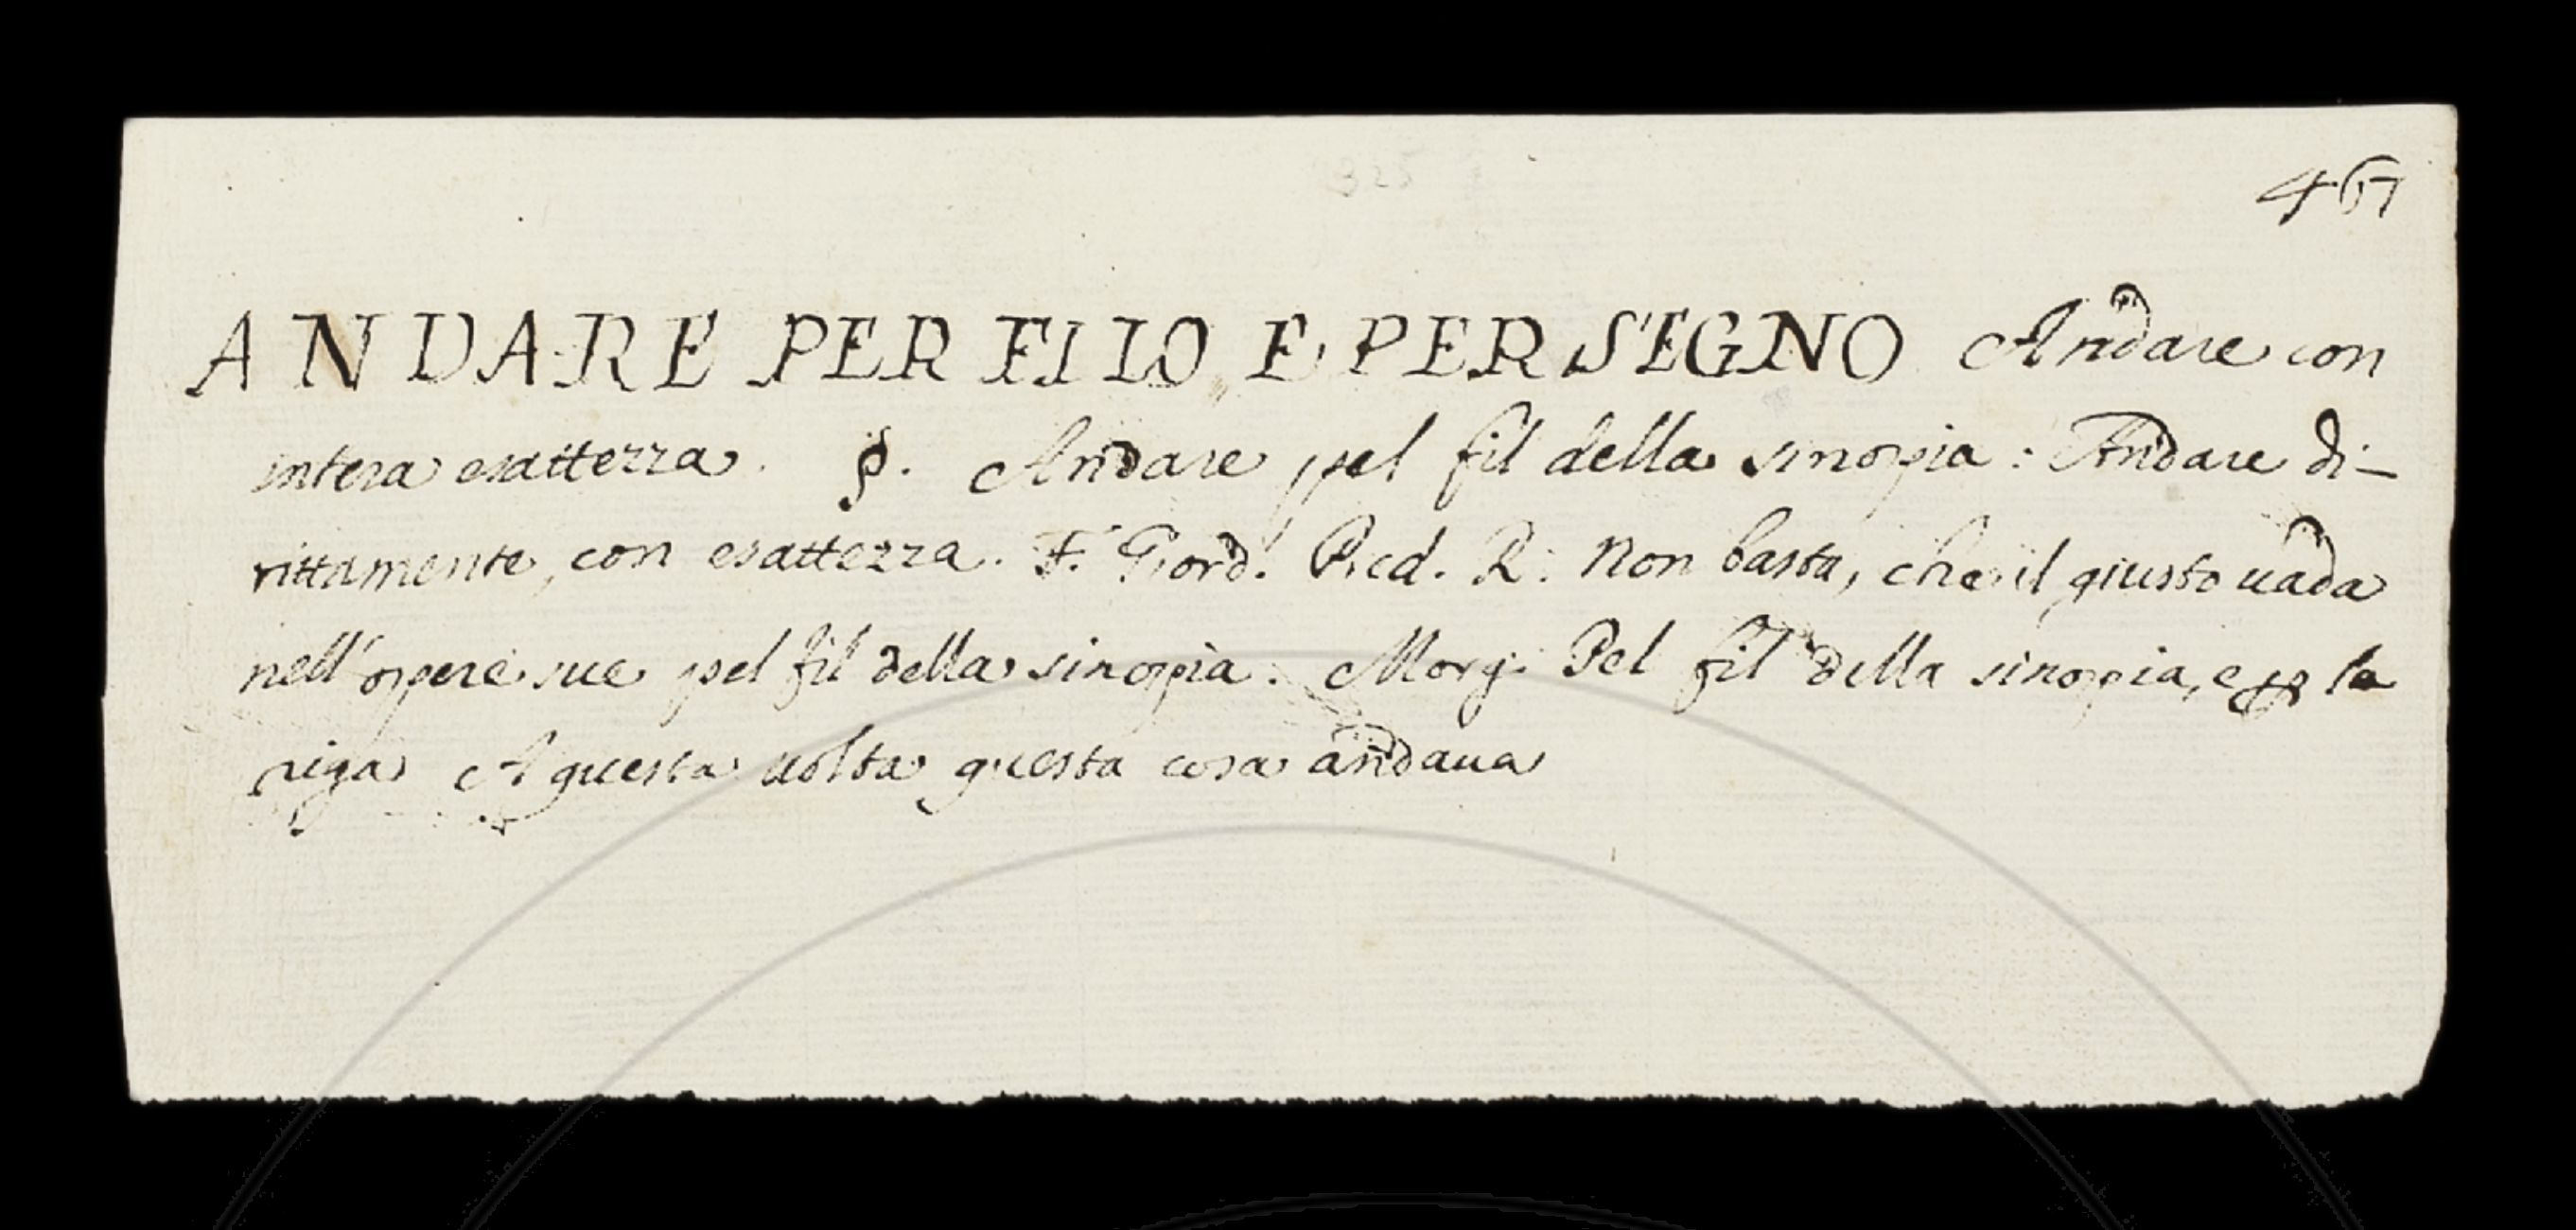 467
ANDARE PER FILO E PER SEGNO Andare con
intera esattezza. §. Andare pel fil della sinopia: Andare di-
rittamente, con esattezza. F. Giord. Pred. R. Non basta, che il giusto uada
nell'opere sue pel fil della sinopia. Morg. Pel fil della sinopia, e p la
riga A questa uolta questa cosa andaua